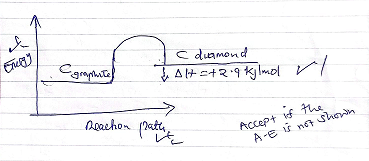 Energy
C graphite
C diamond
ΔH = +2.9 kJ/mol
Reaction path
Accept is the
A-E is not shown